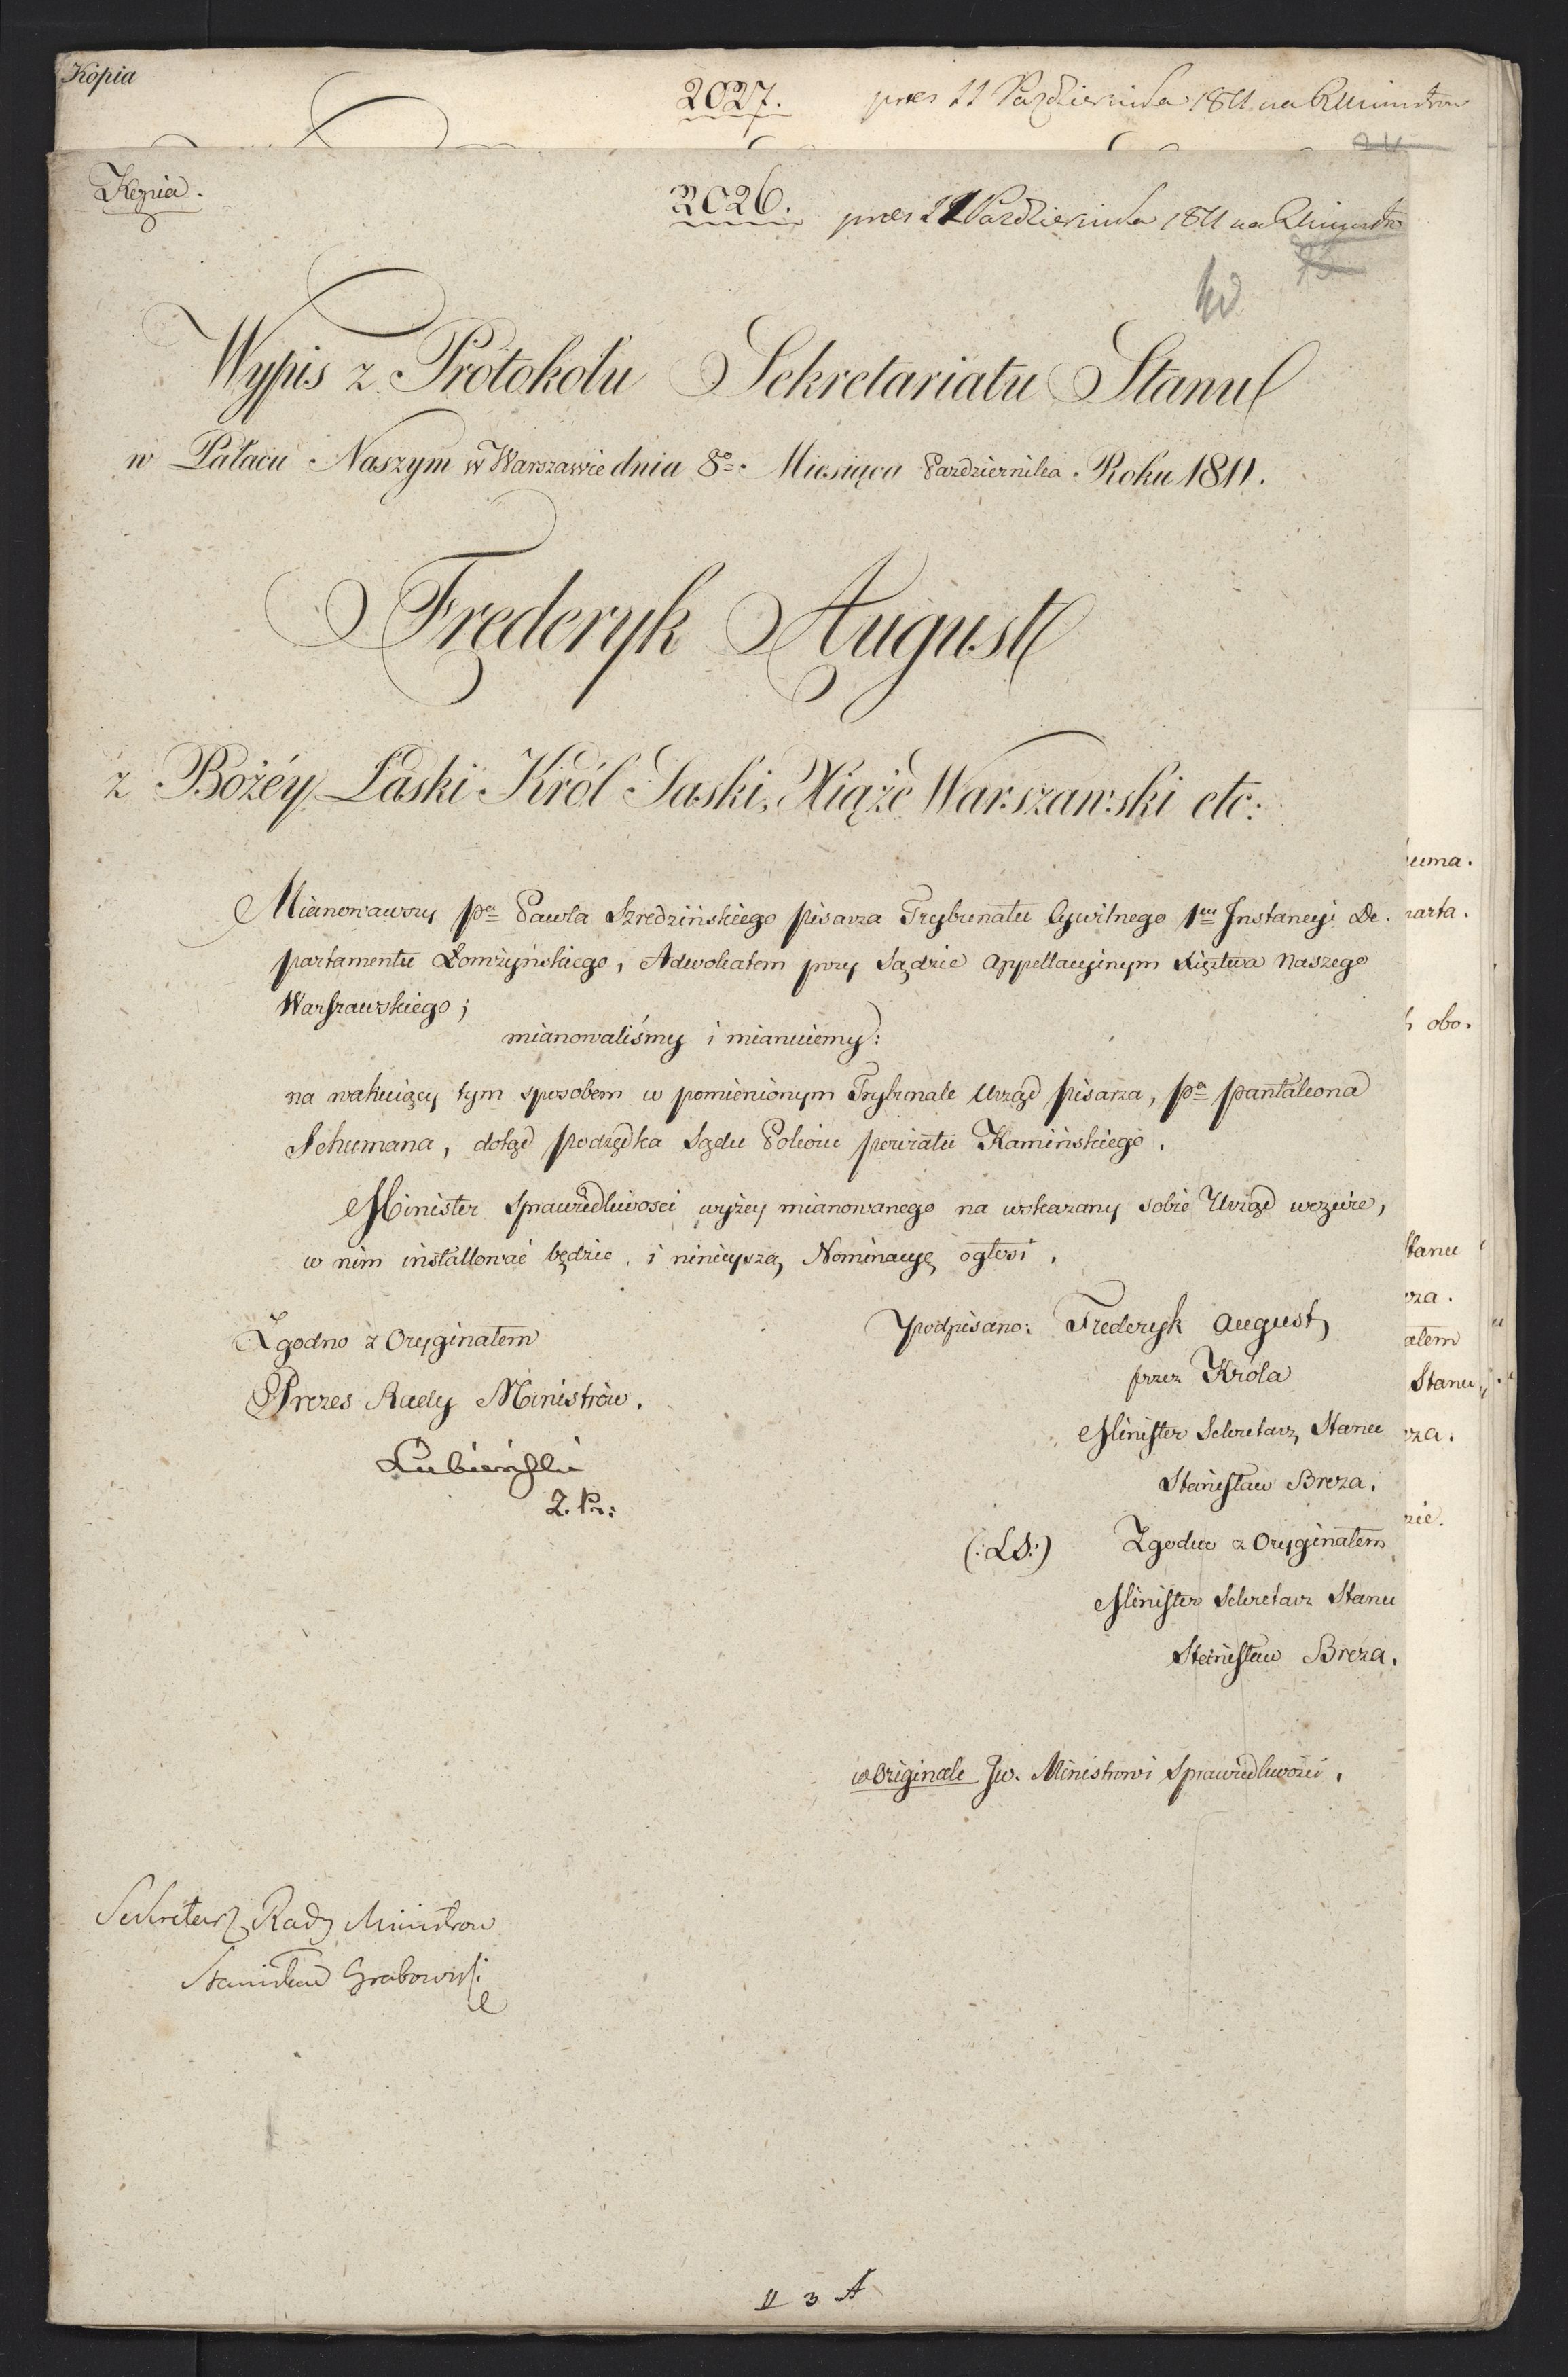 Kopia
2027. prces 11 Pazdziernika 1811 na RMinistrow
Kopia.
2026. prces 11 Pazdziernika 1811 na RMinistr
Wypis z Protokołu Sekretariatu Stanu
w Pałacu Naszym w Warszawie dnia 8º. Miesiąca Pazdziernika. Roku 1811.
Frederyk August
z Bożéy Łaski Król Saski, Xiąże Warszawski etc:
Mianowawszy Pa Pawła Szredzińskiego pisarza Trybunału Cywilnego 1ey Instancyi De-
partamentu Łomżyńskiego, Adwokatem przy Sądzie Appellacyinym Xięztwa Naszego
Warszawskiego;
mianowaliśmy i mianuiemy:
na wakuiący tym sposobem w pomienionym Trybunale Urząd pisarza, Pa Pantaleona
Schumana, dotąd Podsędka Sądu Pokoiu powiatu Kamińskiego.
Minister Sprawiedliwosci wyżey mianowanego na wskazany sobie Urząd wezwie,
w nim installować będzie, i nineyszą Nominacyę ogłosi.
Zgodno z Oryginałem
Prezes Rady Ministrów.
Łubieński
Z. P.:
podpisano: Frederyk August
przez Króla
Minister Sekretarz Stanu
Stanisław Breza.
(:LS:) Zgodno z Oryginałem
Minister Sekretarz Stanu
Stanisław Breza.
w Originale Jw. Ministrowi Sprawiedliwości.
Sekretarz Rady Ministrow
Stanisław Grabowski
II 3 A
uma.
parta.
obo.
Stanu
za.
ałem
Stanu
za.
zie.